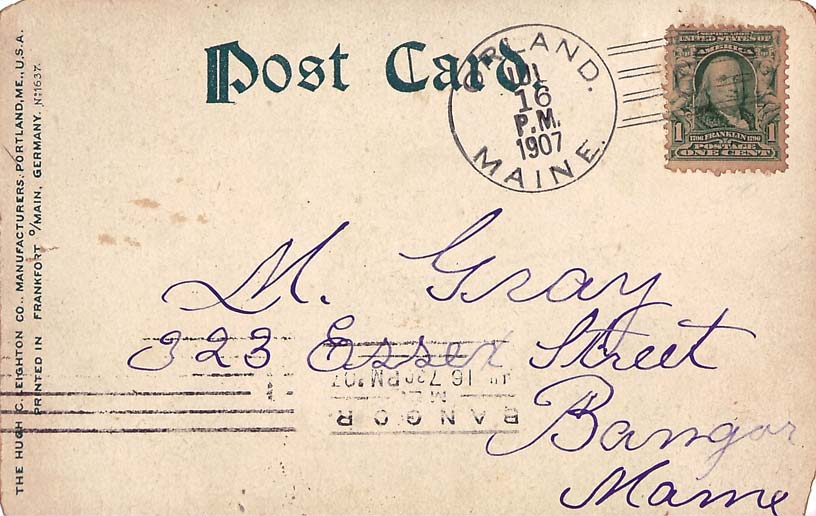 THE HUGH C. LEIGHTON CO., MANUFACTURERS, PORTLAND, ME., U.S.A.
PRINTED IN FRANKFORT o/MAIN, GERMANY. No 1637.
Post Card.
ORLAND.
JUL
16
P.M.
1907
MAINE.
SERIES 1902
UNITED STATES OF
AMERICA
1 1706 FRANKLIN 1790 1
POSTAGE
ONE CENT
M. Gray
323 Essex Street
Bangor
Maine
BANGOR
ME.
JUL 16 730PM '07
1